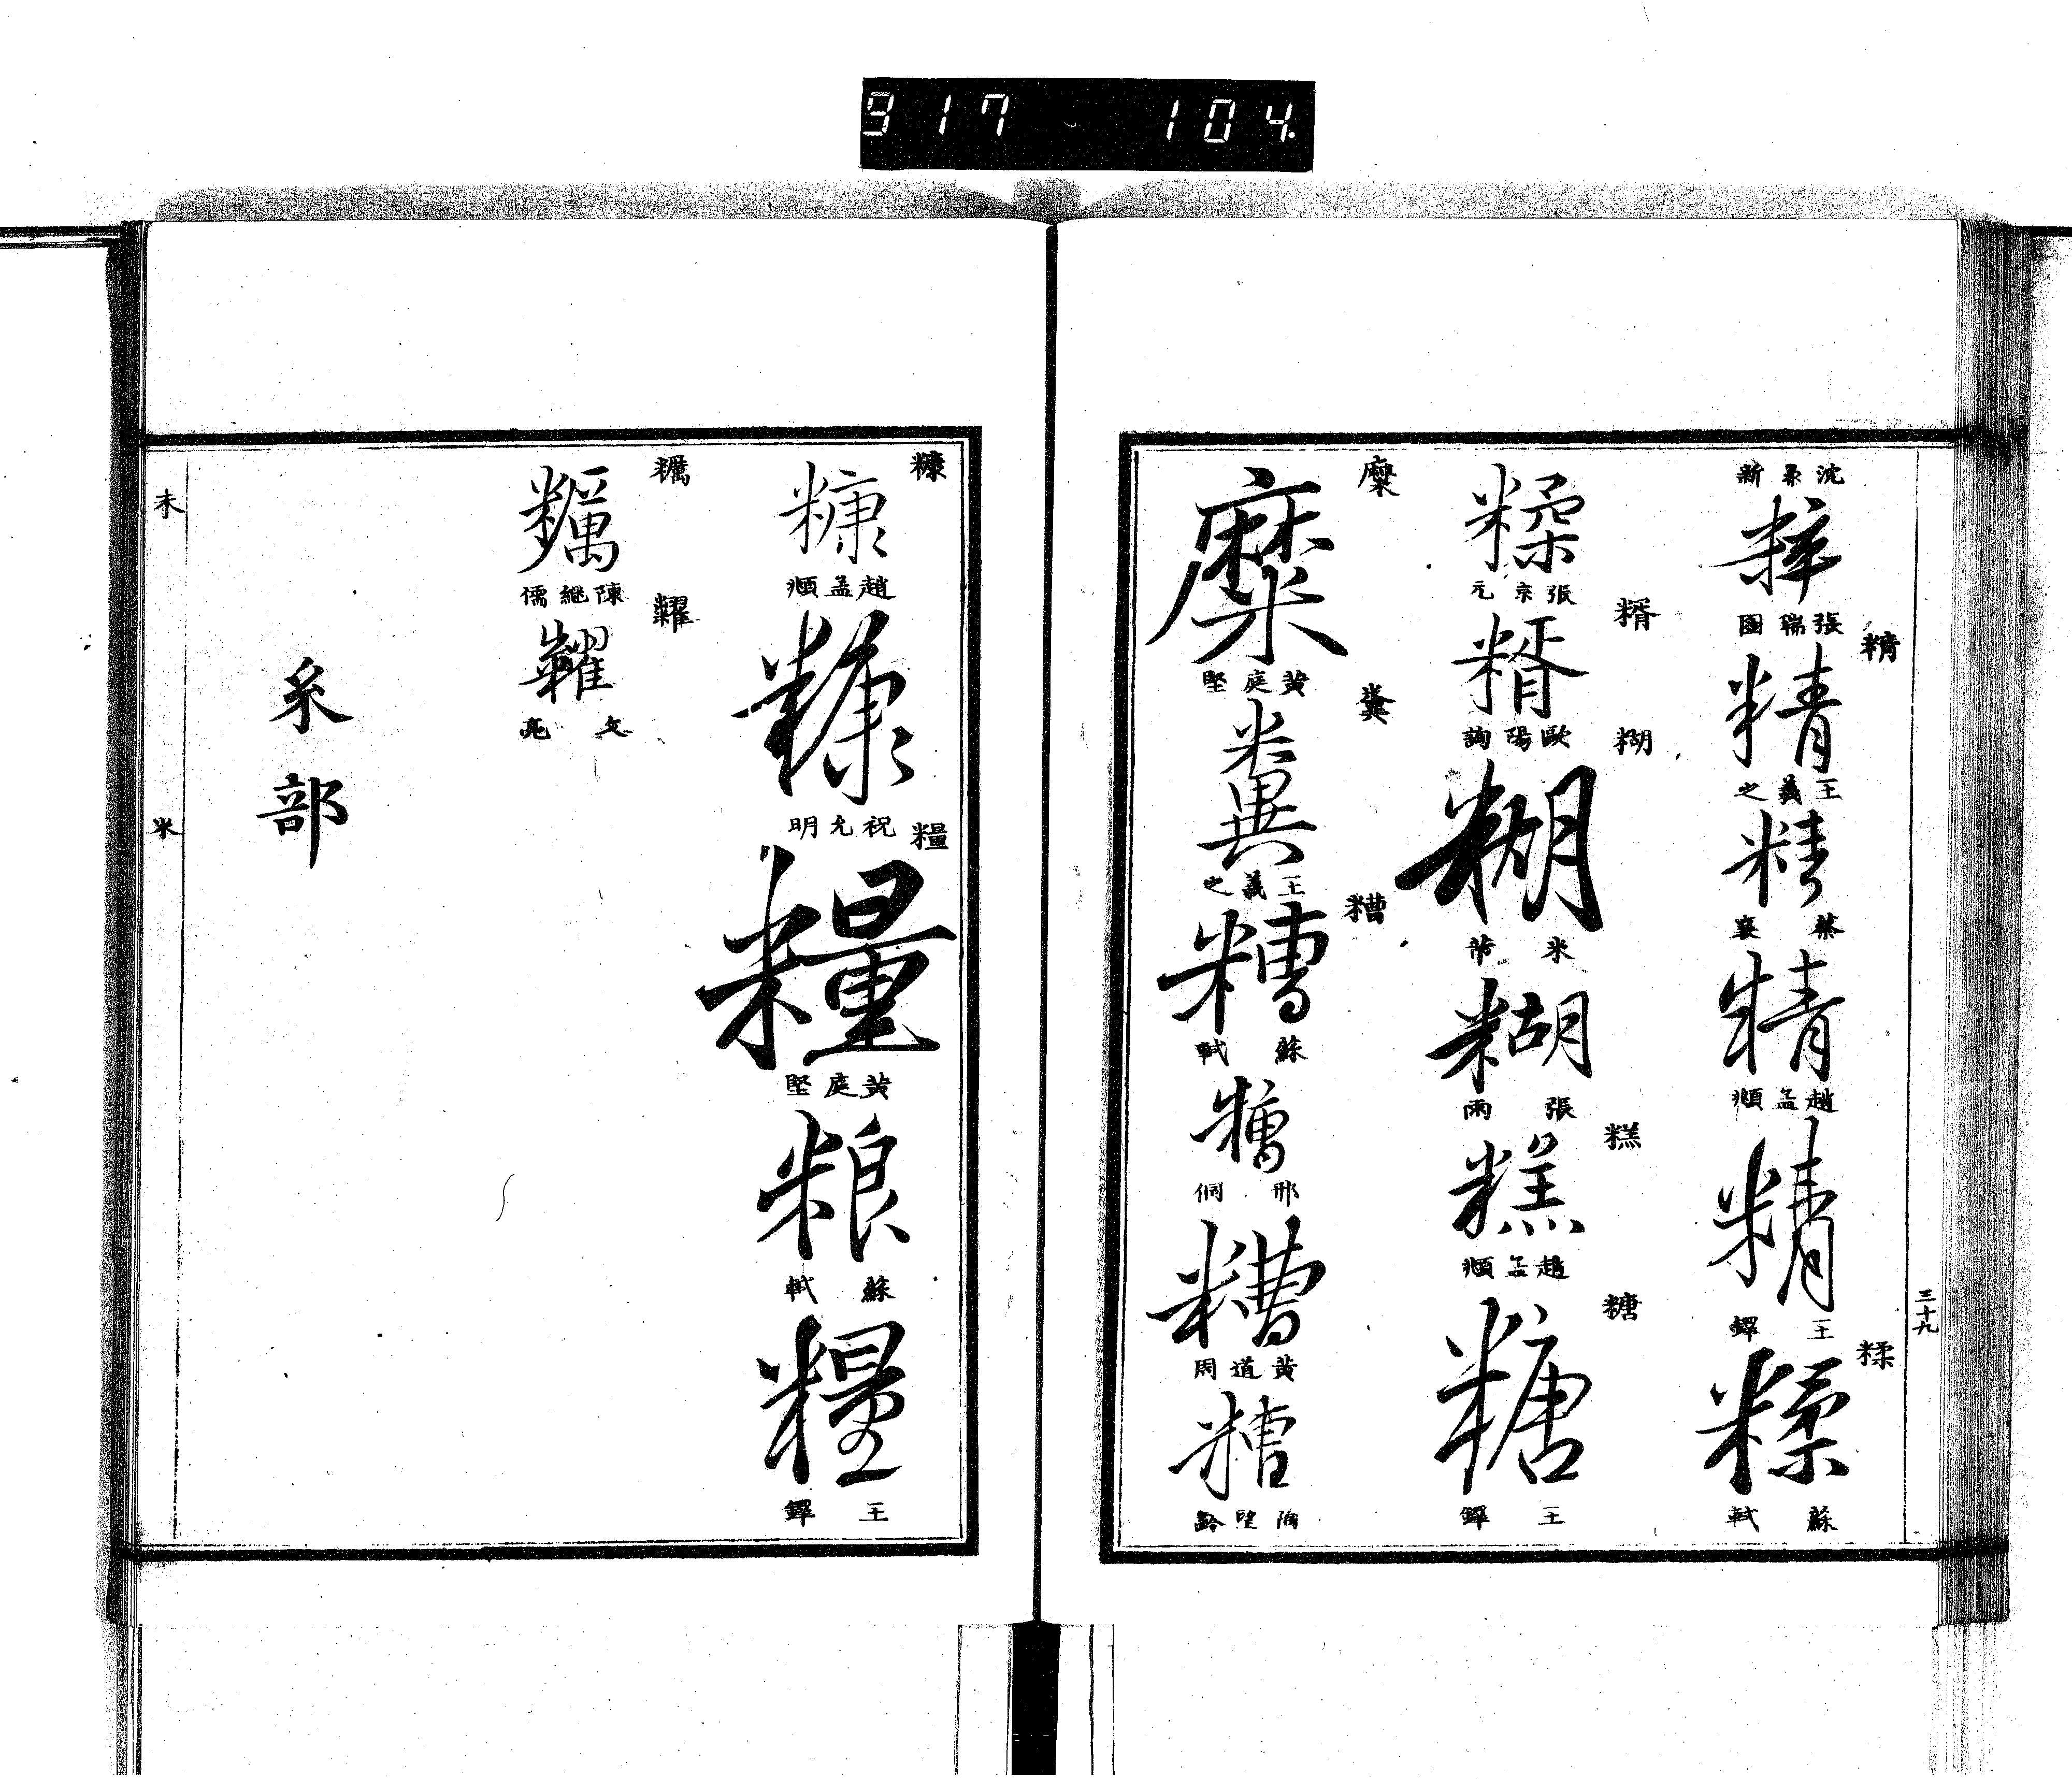 917 104
三十九
沈鼎新
粹
張瑞圖
精
精
王羲之
精
蔡襄
精
趙孟頫
精
王鐸
糅
糅
蘇軾
糅
張京元
糈
糈
歐陽詢
糊
糊
米芾
糊
張雨
糕
糕
趙孟頫
糖
糖
王鐸
糜
糜
黃庭堅
糞
糞
王羲之
糟
糟
蘇軾
糟
邢侗
糟
黃道周
糟
陶望齡
糠
糠
趙孟頫
糠
祝允明
糧
糧
黃庭堅
粮
蘇軾
糧
王鐸
糲
糲
陳繼儒
糶
文亮
糸部
耒
米